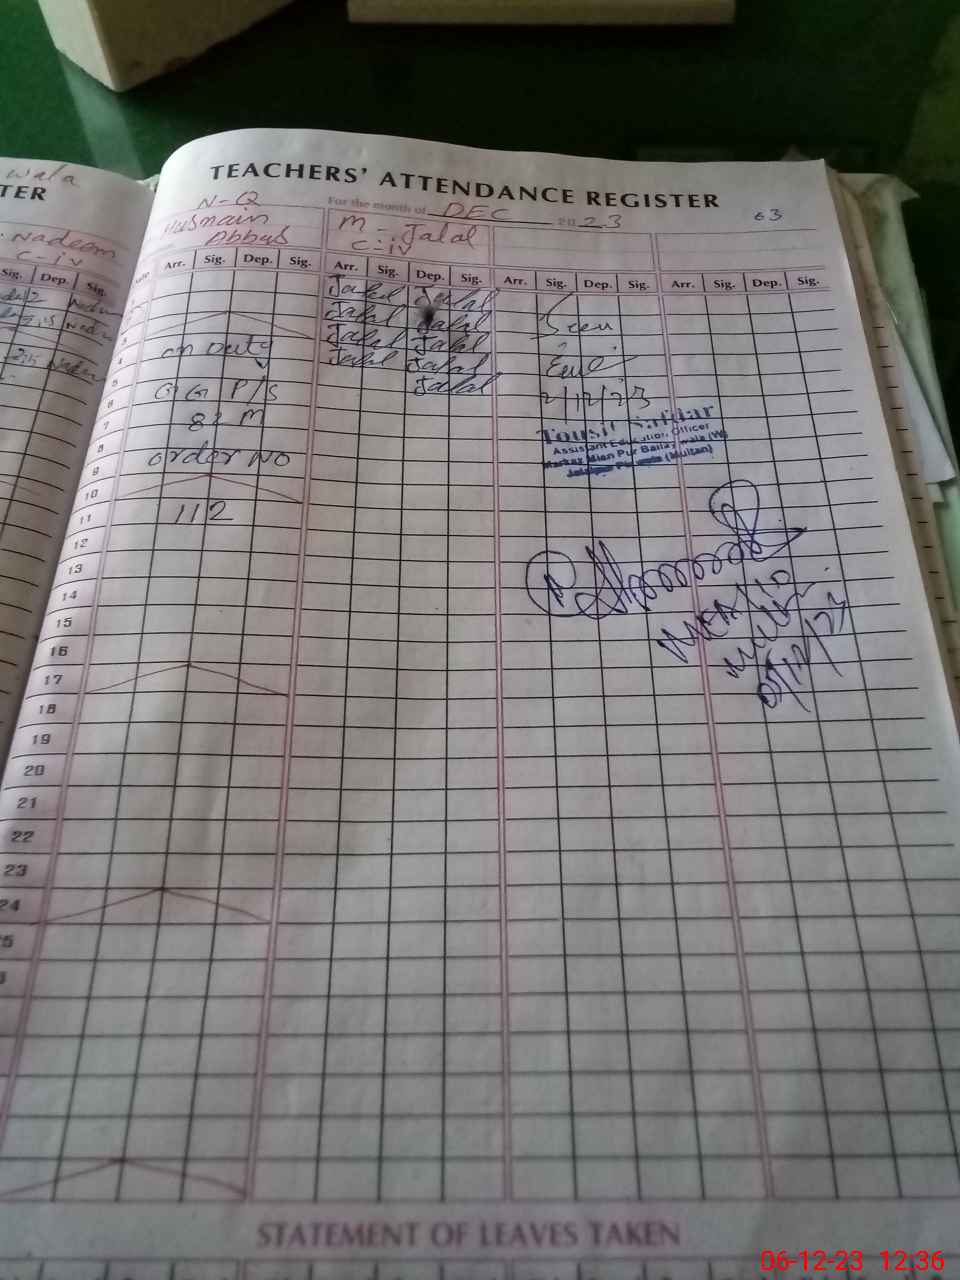 wala
TER
Nadeem
C-iv
Sig. Dep. Sig.
TEACHERS' ATTENDANCE REGISTER
For the month of DEC 2023
63
N-Q
Husnain
Abbas
M-Jalal
C-iv
Arr. Sig. Dep. Sig. Arr. Sig. Dep. Sig. Arr. Sig. Dep. Sig. Arr. Sig. Dep. Sig.
Jalal Jalal
Jalal Jalal
Jalal Jalal
Jalal Jalal
Jalal
on Duty
GG P/S
82 M
order NO
112
Seen
2/12/23
Assistant Education Officer
Markaz Mian Pur Bailay wala (W)
(Multan)
05/12/23
3
4
5
6
7
8
9
10
11
12
13
14
15
16
17
18
19
20
21
22
23
24
STATEMENT OF LEAVES TAKEN
06-12-23 12:36